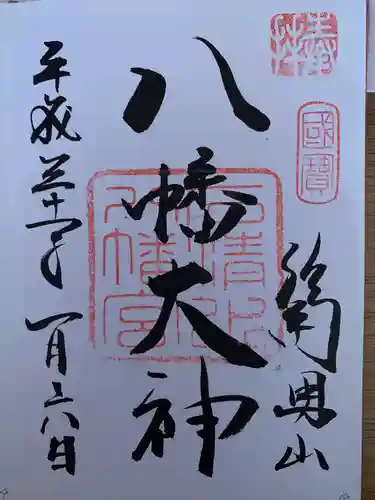 奉拝
國寶
男山
八幡大神
石清水
八幡宮
平成三十一年一月二八日